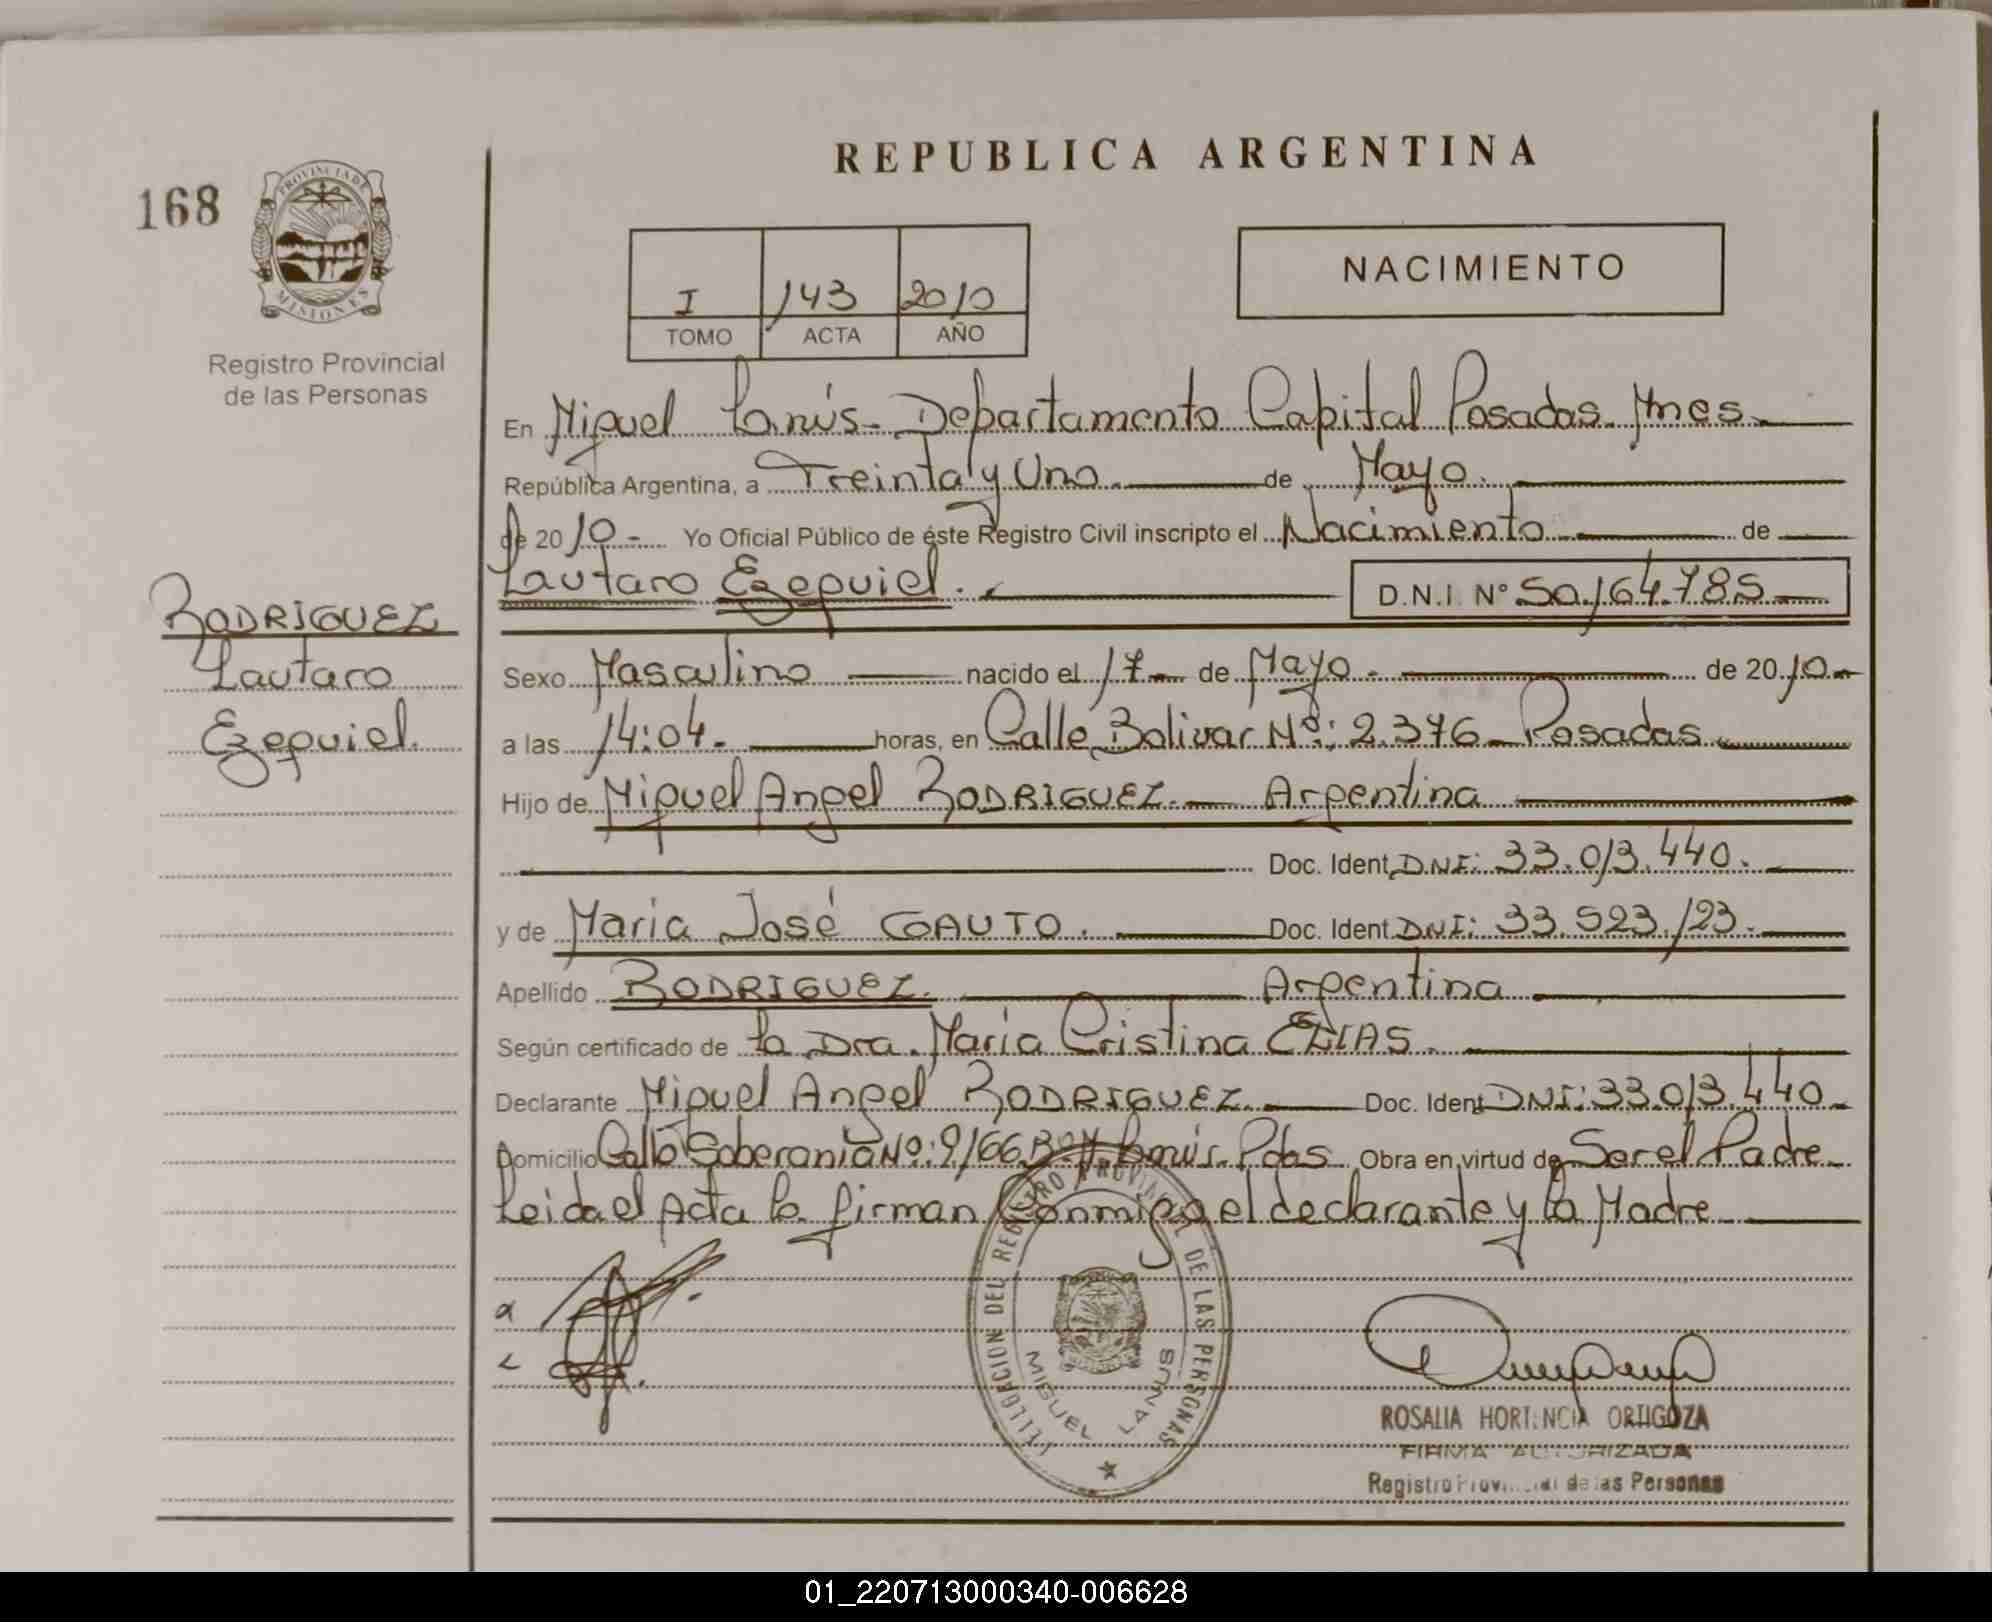 REPUBLICA ARGENTINA
168
PROVINCIA DE
MISIONES
Registro Provincial
de las Personas
NACIMIENTO
I 143 2010
TOMO ACTA AÑO
En Miguel Lanús - Departamento Capital Posadas. Mnes.
República Argentina, a Treinta y Uno de Mayo.
de 2010 - Yo Oficial Público de éste Registro Civil inscripto el Nacimiento de
Lautaro Ezequiel. D.N.I. Nº 50.164.785
RODRIGUEZ
Lautaro
Ezequiel.
Sexo Masculino nacido el 17 de Mayo - de 2010 -
a las 14:04 - horas, en Calle Bolivar Nº: 2.376 - Posadas
Hijo de Miguel Angel RODRIGUEZ. Argentina
Doc. Ident. DNI: 33.013.440.
y de Maria José GAUTO. Doc. Ident. DNI: 33.523.123.
Apellido RODRIGUEZ. Argentina
Según certificado de la Dra. Maria Cristina ELIAS.
Declarante Miguel Angel RODRIGUEZ Doc. Ident DNI: 33.013.440
Domicilio Calle Soberania Nº: 9166 Bº M. Lanús. Pdas Obra en virtud de Ser el Padre
Leida el Acta la firman Conmigo el declarante y la Madre
DELEGACION DEL REGISTRO PROVINCIAL DE LAS PERSONAS
MIGUEL LANUS
ROSALIA HORTENCIA ORTIGOZA
FIRMA AUTORIZADA
Registro Provincial de las Personas
01_220713000340-006628